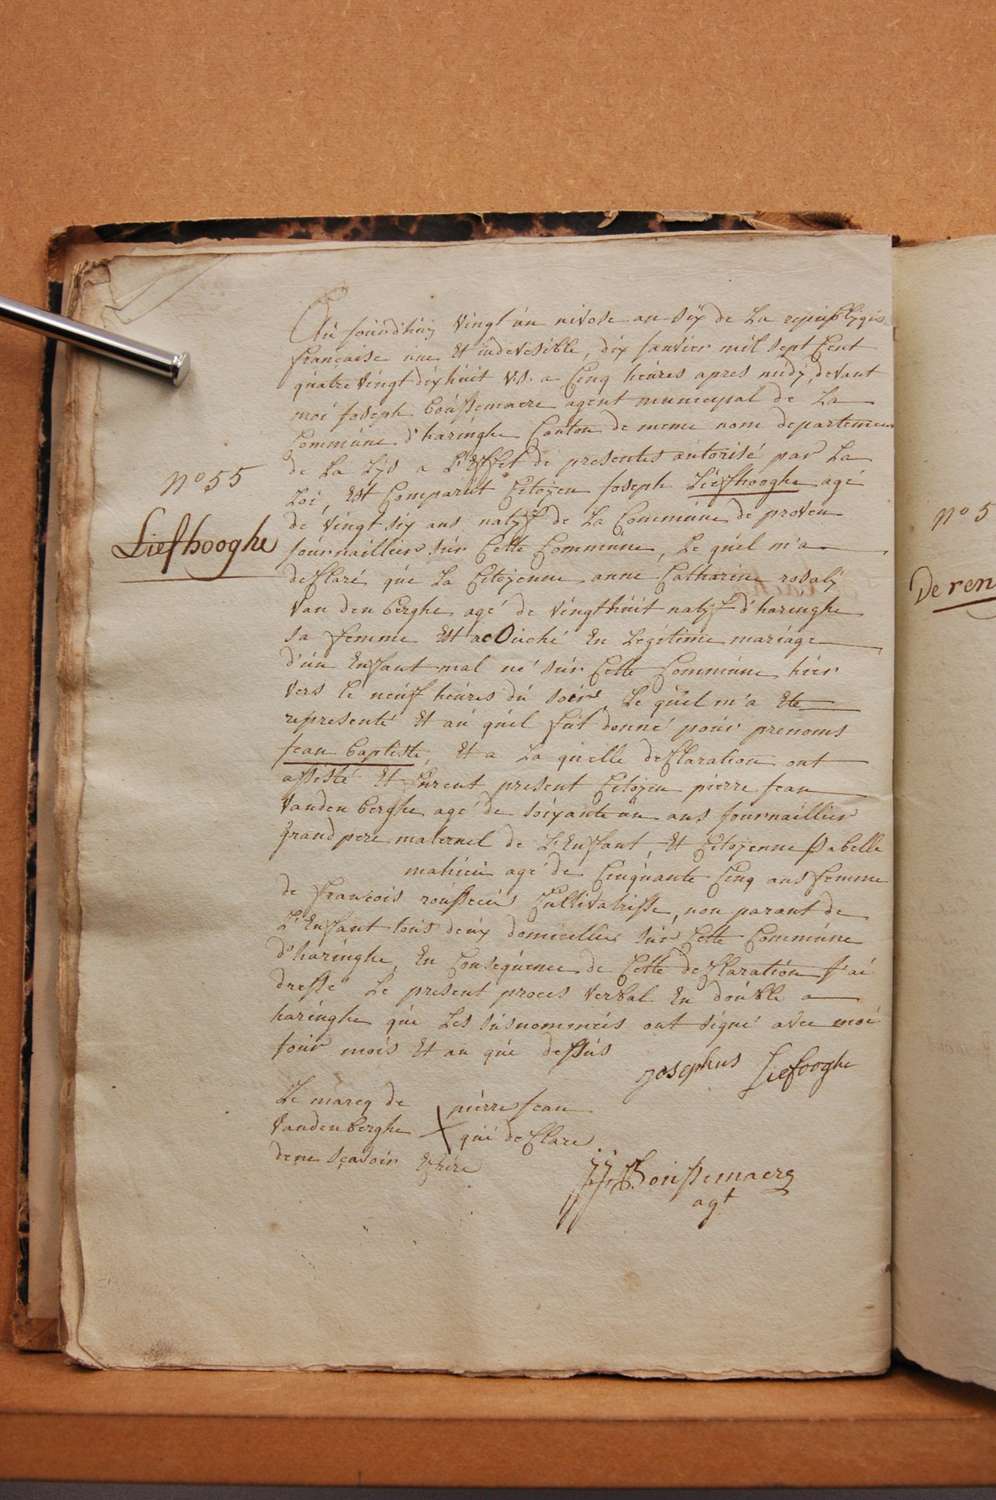 N° 55
Liefhooghe
Au jourd'huij vingt un nivose an six de La republique
francaise une Et indivesible, dix janvier mil sept Cent
quatre vingt dix huit v.s. a Cinq heures apres midj, devant
moi joseph Boussemaere agent municipal de La
Commune d'haringhe Canton de meme nom departement
de La Lijs a L'Effet de presentes autorisé par La
Loi, Est Comparut Citoijen joseph Liefhooghe agé
de vingt six ans natijf de La Commune de proven
journaillier sur Cette Commune, Le quel m'a
deClaré que La Citoijenne anne Catharine rosalij
vanden berghe agé de vingthuit natijf d'haringhe
sa femme Est acOuché En Legetime mariage
d'un Enfant mal né sur Cette Commune hier
vers le neuf heures du soir, Le quel m'a Ete
representé Et au quel fut donné pour prenoms
jean baptiste, Et a La quelle deClaration ont
assisté Et furent present Citoijen pierre jean
vanden berghe agé de soixante un ans journaillier
grand pere maternel de L'Enfant, Et Citoijenne isabelle
mahieu agé de Cinquante Cinq ans femme
de francois rousseeus Cultivatrisse, non parant de
L'Enfant tous deux domicillié sur Cette Commune
d'haringhe, En Consequence de Cette deClaration j'ai
dressé Le present proces verbal En double a
haringhe que Les susnommeis ont signé avec moi
jour mois Et an que dessus
josephus Liefooghe
Le marcq de pierre jean
vandenberghe X qui deClare
dene sçavoir Ecrire
J.J. Boussemaere
agt
N° 5
De ren